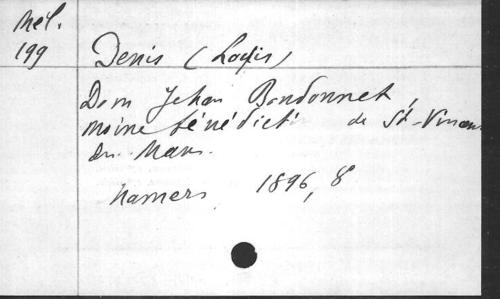 Mél.
199
Denis (Louis)
Dom Jehan Bondonnet,
moine bénédict. de St-Vincent
du Mans.
Mamers 1896, 8°